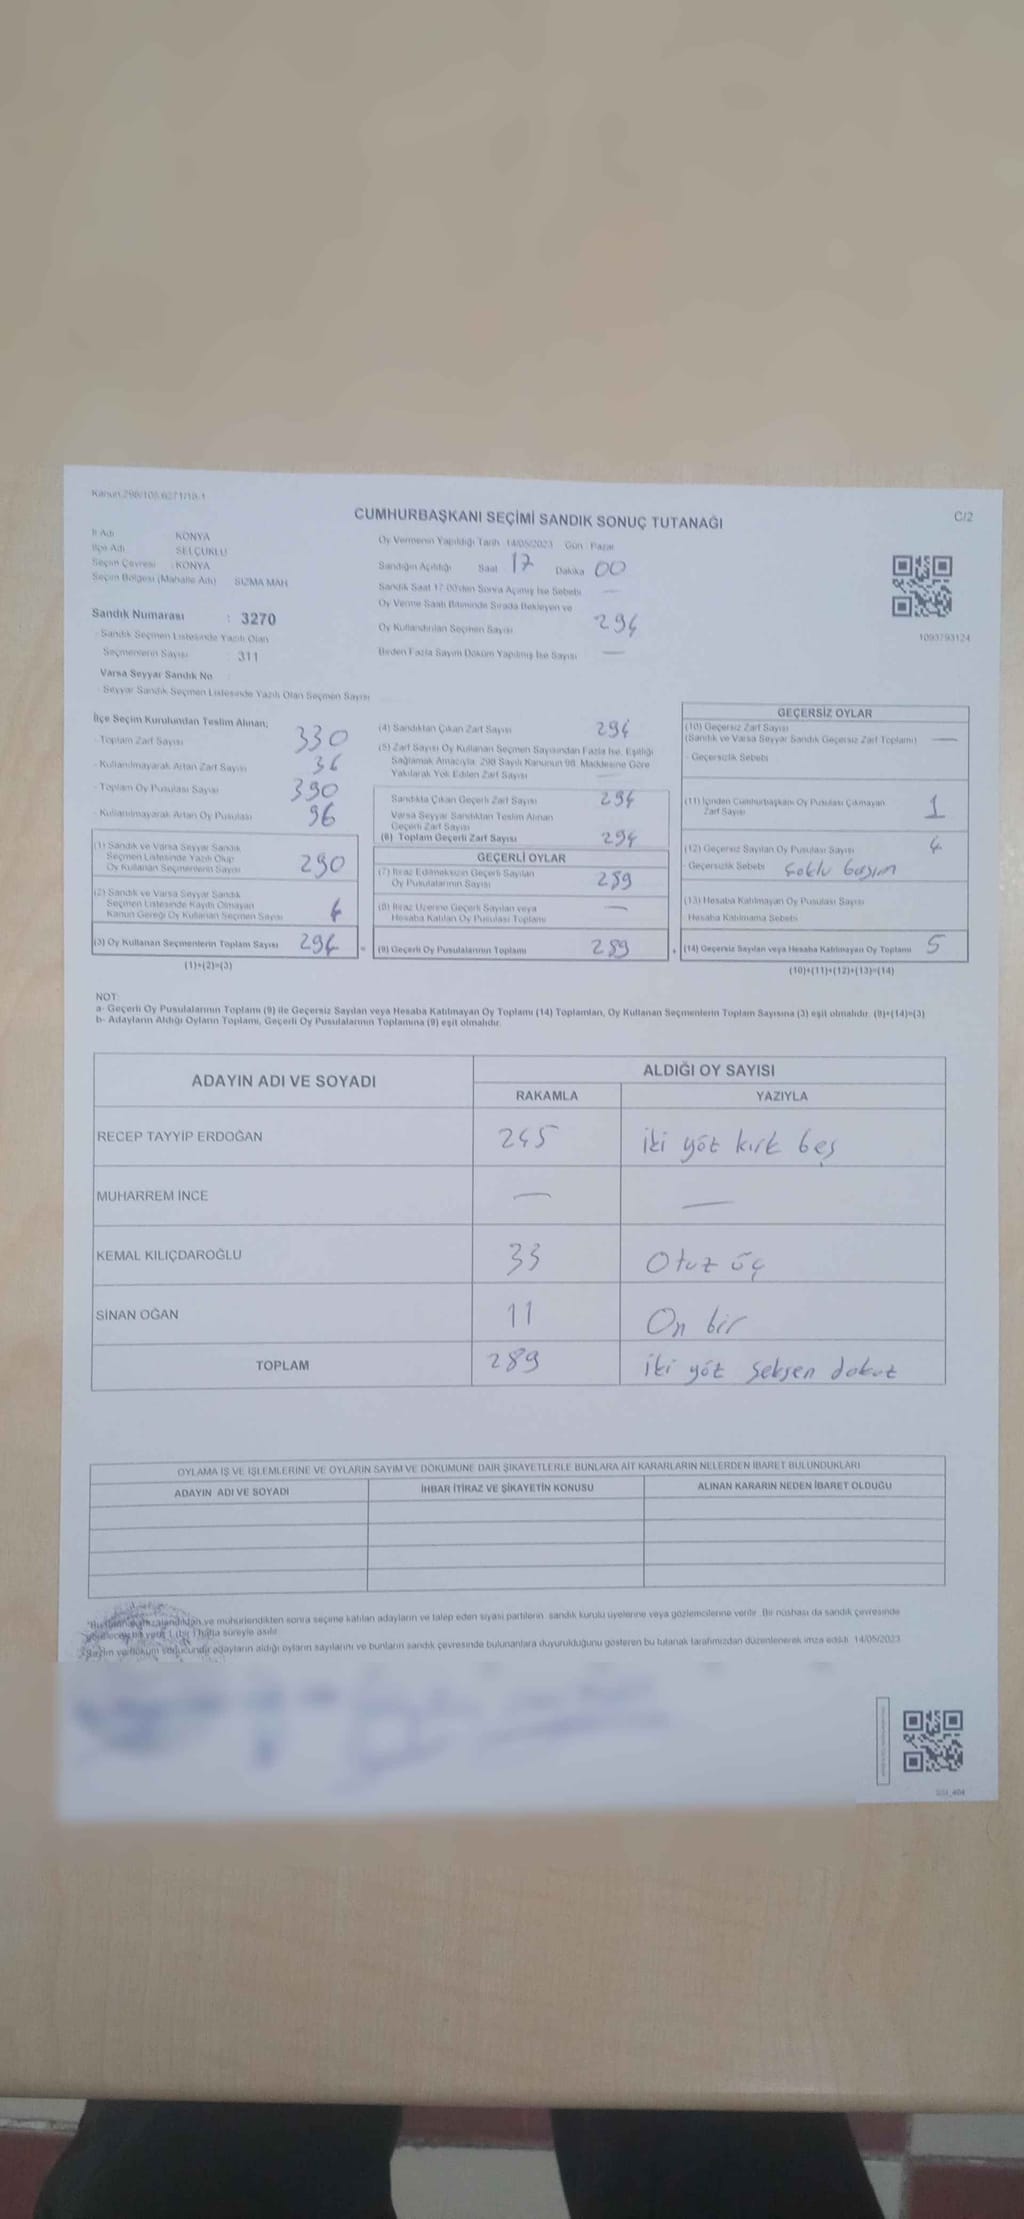 Kanun:298/105,6271/18-1
C/2
CUMHURBAŞKANI SEÇİMİ SANDIK SONUÇ TUTANAĞI
İl Adı KONYA
İlçe Adı SELÇUKLU
Seçim Çevresi : KONYA
Seçim Bölgesi (Mahalle Adı) SIZMA MAH
Sandık Numarası : 3270
- Sandık Seçmen Listesinde Yazılı Olan
Seçmenlerin Sayısı : 311
Varsa Seyyar Sandık No
- Seyyar Sandık Seçmen Listesinde Yazılı Olan Seçmen Sayısı
Oy Vermenin Yapıldığı Tarih 14/05/2023 Gün : Pazar
Sandığın Açıldığı Saat 17 Dakika 00
Sandık Saat 17:00'den Sonra Açılmış İse Sebebi —
Oy Verme Saati Bitiminde Sırada Bekleyen ve
Oy Kullandırılan Seçmen Sayısı 294
Birden Fazla Sayım Döküm Yapılmış İse Sayısı —
1093793124
İlçe Seçim Kurulundan Teslim Alınan;
- Toplam Zarf Sayısı 330
- Kullanılmayarak Artan Zarf Sayısı 36
- Toplam Oy Pusulası Sayısı 390
- Kullanılmayarak Artan Oy Pusulası 96
(1) Sandık ve Varsa Seyyar Sandık
Seçmen Listesinde Yazılı Olup
Oy Kullanan Seçmenlerin Sayısı 290
(2) Sandık ve Varsa Seyyar Sandık
Seçmen Listesinde Kayıtlı Olmayan
Kanun Gereği Oy Kullanan Seçmen Sayısı 4
(3) Oy Kullanan Seçmenlerin Toplam Sayısı 294
(1)+(2)=(3)
(4) Sandıktan Çıkan Zarf Sayısı 294
(5) Zarf Sayısı Oy Kullanan Seçmen Sayısından Fazla İse, Eşitliği
Sağlamak Amacıyla, 298 Sayılı Kanunun 98. Maddesine Göre
Yakılarak Yok Edilen Zarf Sayısı —
Sandıkta Çıkan Geçerli Zarf Sayısı 294
Varsa Seyyar Sandıktan Teslim Alınan
Geçerli Zarf Sayısı
(6) Toplam Geçerli Zarf Sayısı 294
GEÇERLİ OYLAR
(7) İtiraz Edilmeksizin Geçerli Sayılan
Oy Pusulalarının Sayısı 289
(8) İtiraz Üzerine Geçerli Sayılan veya
Hesaba Katılan Oy Pusulası Toplamı —
(9) Geçerli Oy Pusulalarının Toplamı 289
GEÇERSİZ OYLAR
(10) Geçersiz Zarf Sayısı
(Sandık ve Varsa Seyyar Sandık Geçersiz Zarf Toplamı) —
- Geçersizlik Sebebi
(11) İçinden Cumhurbaşkanı Oy Pusulası Çıkmayan
Zarf Sayısı 1
(12) Geçersiz Sayılan Oy Pusulası Sayısı 4
- Geçersizlik Sebebi Çoklu basım
(13) Hesaba Katılmayan Oy Pusulası Sayısı
Hesaba Katılmama Sebebi
(14) Geçersiz Sayılan veya Hesaba Katılmayan Oy Toplamı 5
(10)+(11)+(12)+(13)=(14)
NOT:
a- Geçerli Oy Pusulalarının Toplamı (9) ile Geçersiz Sayılan veya Hesaba Katılmayan Oy Toplamı (14) Toplamları, Oy Kullanan Seçmenlerin Toplam Sayısına (3) eşit olmalıdır. (9)+(14)=(3)
b- Adayların Aldığı Oyların Toplamı, Geçerli Oy Pusulalarının Toplamına (9) eşit olmalıdır.
ADAYIN ADI VE SOYADI
ALDIĞI OY SAYISI
RAKAMLA YAZIYLA
RECEP TAYYİP ERDOĞAN 245 iki yöz kırk beş
MUHARREM İNCE — —
KEMAL KILIÇDAROĞLU 33 Otuz üç
SİNAN OĞAN 11 On bir
TOPLAM 289 iki yöz seksen dokuz
OYLAMA İŞ VE İŞLEMLERİNE VE OYLARIN SAYIM VE DÖKÜMÜNE DAİR ŞİKAYETLERLE BUNLARA AİT KARARLARIN NELERDEN İBARET BULUNDUKLARI
ADAYIN ADI VE SOYADI İHBAR İTİRAZ VE ŞİKAYETİN KONUSU ALINAN KARARIN NEDEN İBARET OLDUĞU
ve mühürlendikten sonra seçime katılan adayların ve talep eden siyasi partilerin sandık kurulu üyelerine veya gözlemcilerine verilir. Bir nüshası da sandık çevresinde
1 (bir) hafta süreyle asılır.
adayların aldığı oyların sayılarını ve bunların sandık çevresinde bulunanlara duyurulduğunu gösteren bu tutanak tarafımızdan düzenlenerek imza edildi. 14/05/2023